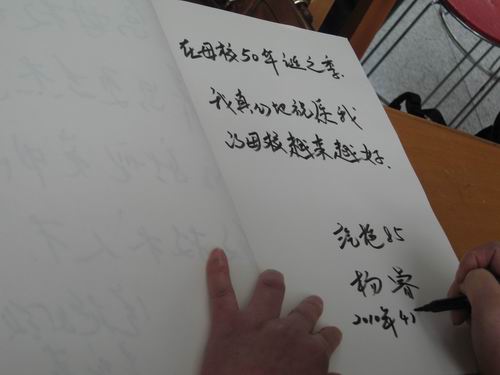 在母校50年诞之季，
我真们地祝愿我
的母校越来越好.
85
杨睿
2010年4